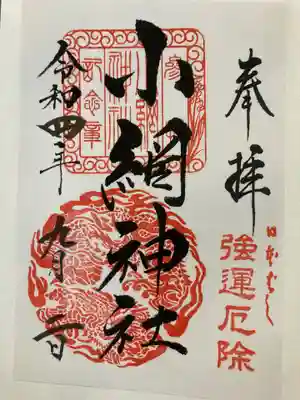 奉拝
日本ばし
強運厄除
小網神社
令和四年
九月二日